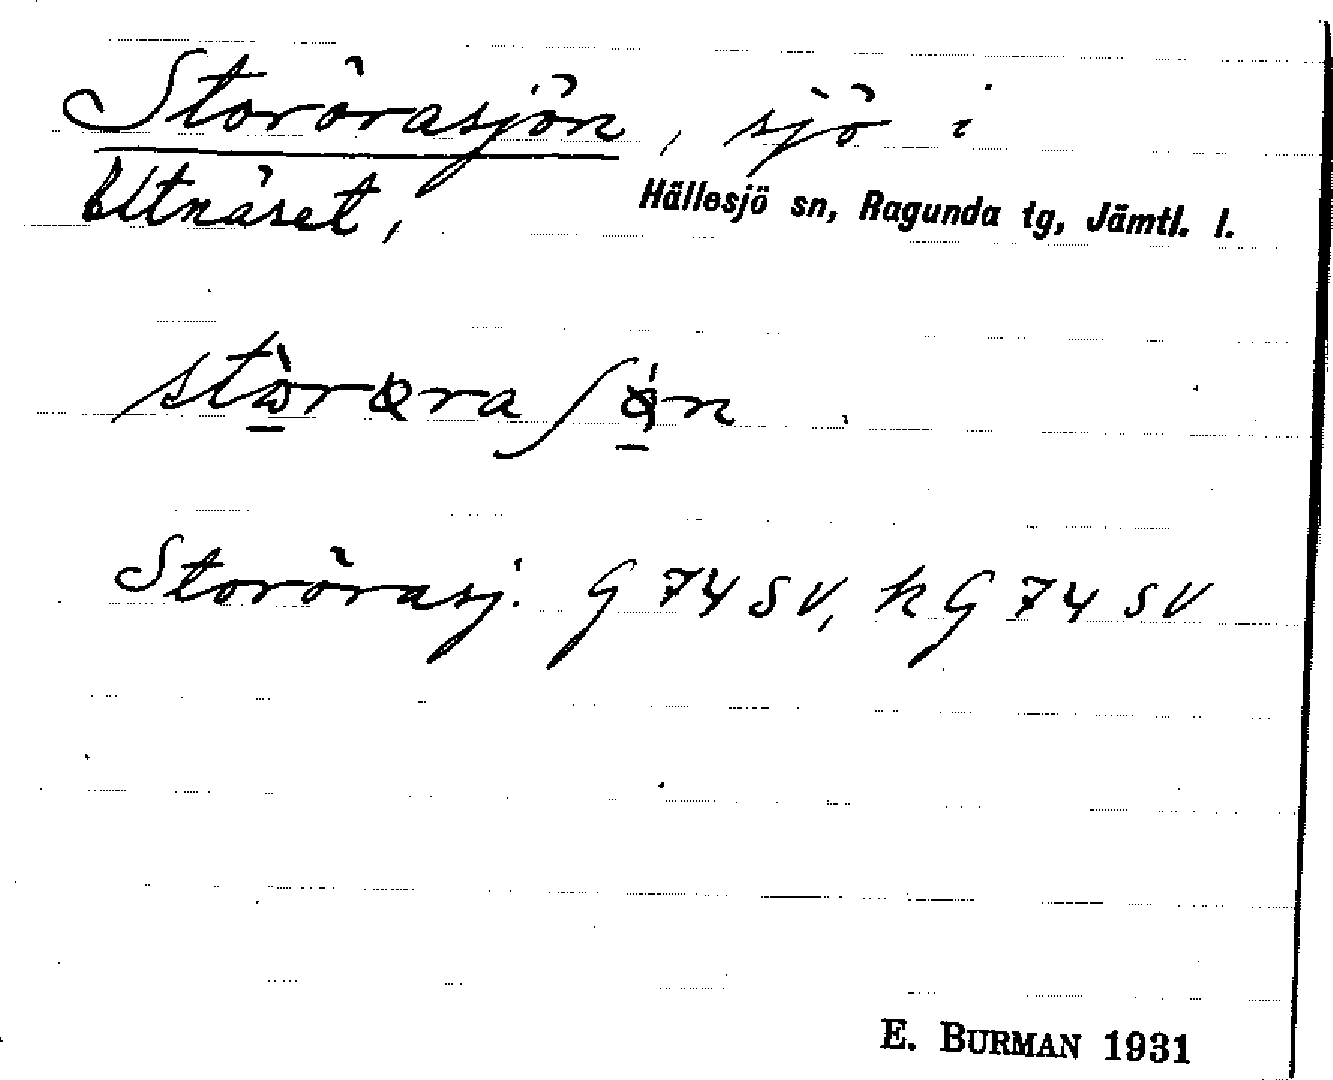 Storörasjön, sjö i
Utnäset, Hällesjö sn, Ragunda tg, Jämtl. l.
Storörasj. G 74 SV, kG 74 SV
E. BURMAN 1931